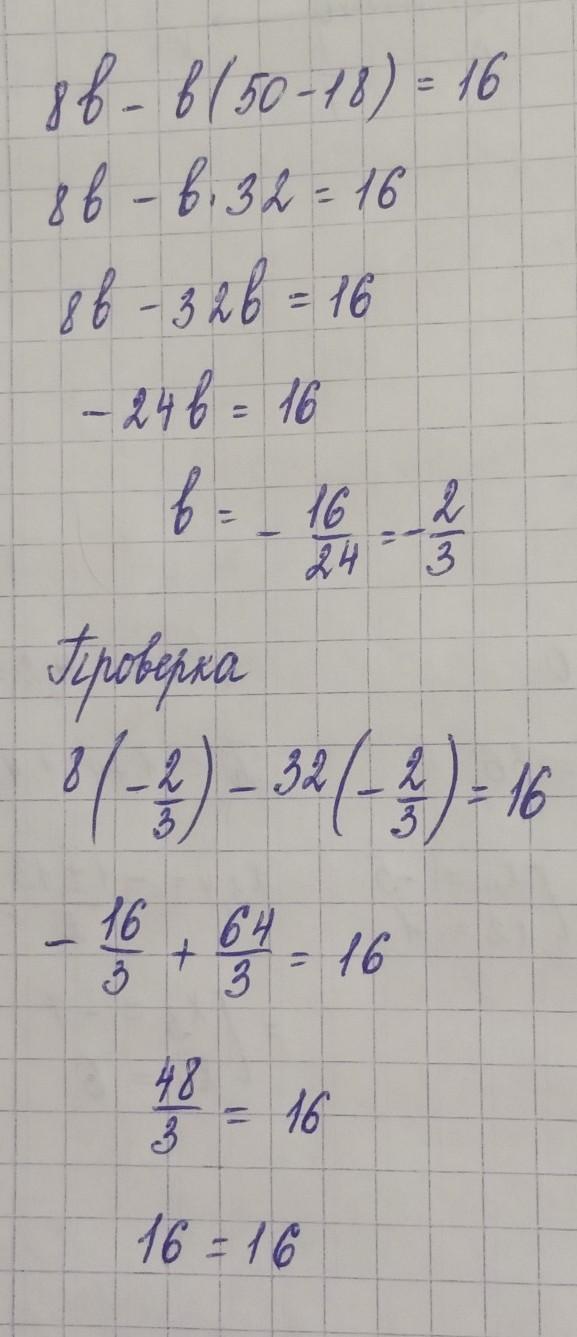 8в - в(50-18) = 16
8в - в·32 = 16
8в - 32в = 16
- 24в = 16
в = - 16/24 = - 2/3
Проверка
8(- 2/3) - 32(- 2/3) = 16
- 16/3 + 64/3 = 16
48/3 = 16
16 = 16